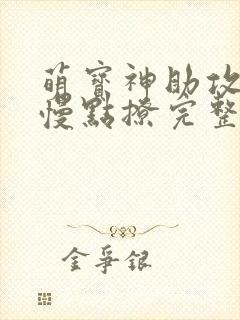 萌寶神助攻
慢點撩完整
金爭銀